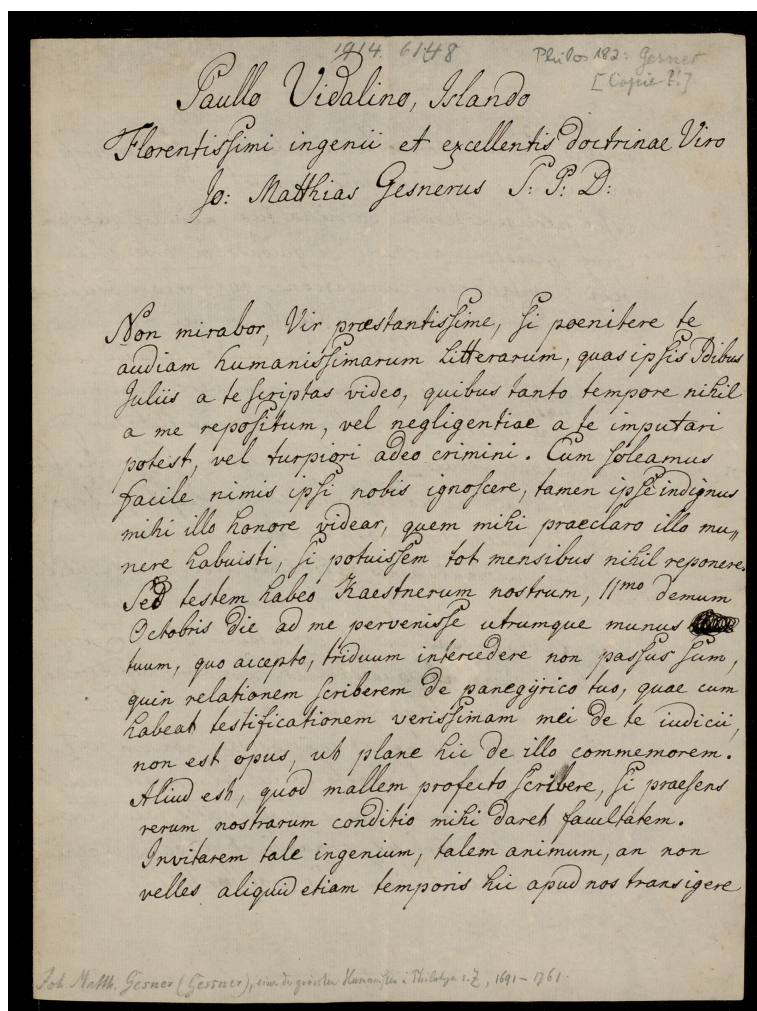 1914. 6148
Philos 182: Gesner
[Copie ?!]
Paullo Vidalino, Islando
Florentissimi ingenii et excellentis doctrinae Viro
Jo: Matthias Gesnerus S: P: D:
Non mirabor, Vir præstantissime, si poenitere te
audiam humanissimarum litterarum, quas ipsis Idibus
Juliis a te scriptas video, quibus tanto tempore nihil
a me repositum, vel negligentiae a te imputari
potest, vel turpiori adeo crimini. Cum soleamus
facile nimis ipsi nobis ignoscere, tamen ipse indignus
mihi illo honore videar, quem mihi praeclaro illo mu„
nere habuisti, si potuissem tot mensibus nihil reponere.
Sed testem habeo Kaestnerum nostrum, 11mo demum
Octobris die ad me pervenisse utrumque munus
tuum, quo accepto, triduum intercedere non passus sum,
quin relationem scriberem de panegÿrico tuo, quae cum
habeat testificationem verissimam mei de te iudicii,
non est opus, ut plane hic de illo commemorem.
Aliud est, quod mallem profecto scribere, si praesens
rerum nostrarum conditio mihi daret facultatem.
Invitarem tale ingenium, talem animum, an non
velles aliquid etiam temporis hic apud nos transigere
Joh. Matth. Gesner (Gessner), einer der grössten Humanisten u. Philologen s. Z., 1691–1761.